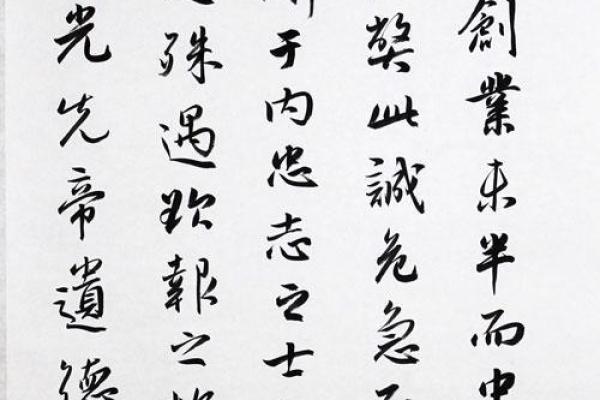 創業未半而中
弊此誠危急
于内忠志之士
殊遇欲報之
光先帝遺德